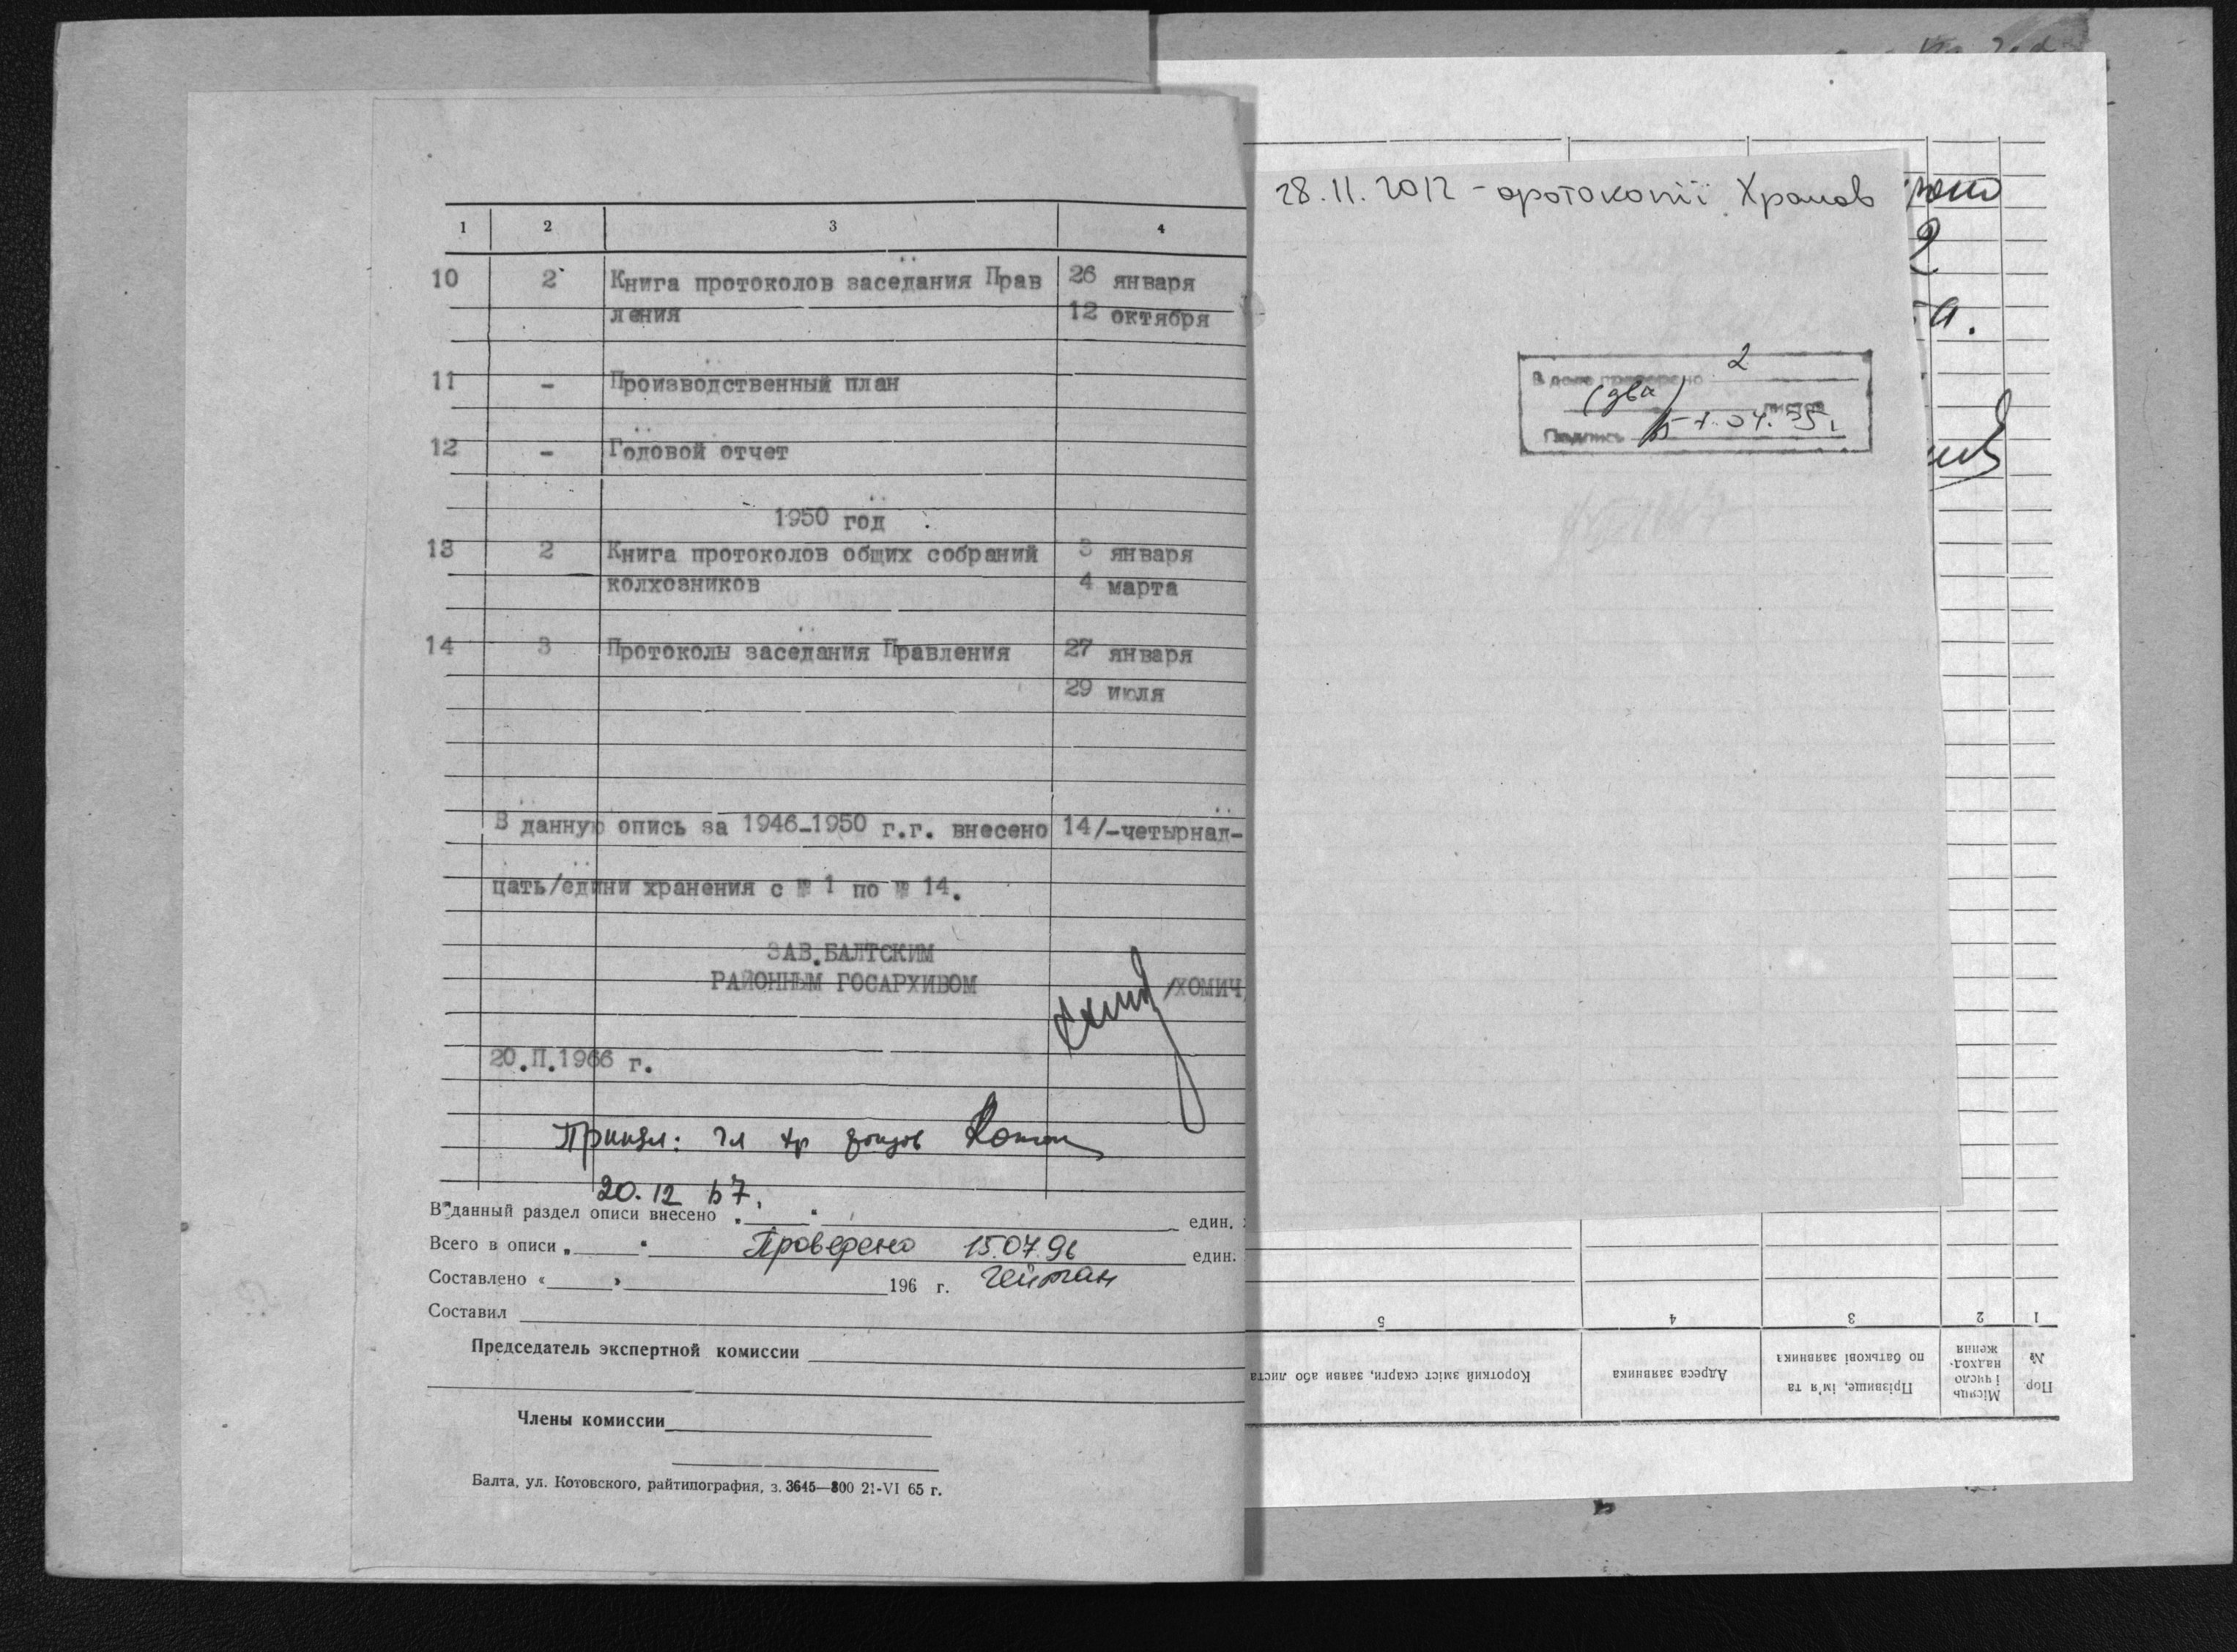 1 2 3 4
10 2 Книга протоколов заседания Прав 26 января
ления 12 октября
11 - Производственный план
12 - Годовой отчет
1950 год
13 2 Книга протоколов общих собраний 3 января
колхозников 4 марта
14 3 Протоколы заседания Правления 27 января
29 июля
В данную опись за 1946-1950 г.г. внесено 14/-четырнад-
цать/едини хранения с № 1 по № 14.
ЗАВ.БАЛТСКИМ
РАЙОННЫМ ГОСАРХИВОМ /ХОМИЧ/
20.П.1966 г.
20.12 67.
В данный раздел описи внесено „ “ един.
Всего в описи „ “ Проверено 15.07.96 един.
Составлено « » 196 г. Чейпан
Составил
Председатель экспертной комиссии
Члены комиссии
Балта, ул. Котовского, райтипография, з. 3645—800 21-VI 65 г.
28.11.2012 - фотокопії Храмов
В деле проверено 2
(два) листов
Подпись
5 4 3 2 1
Короткий зміст скарги, заяви або листа
Адреса заявника
Прізвище, ім'я та
по батькові заявника
Місяць
і число
надход-
ження
Пор.
№